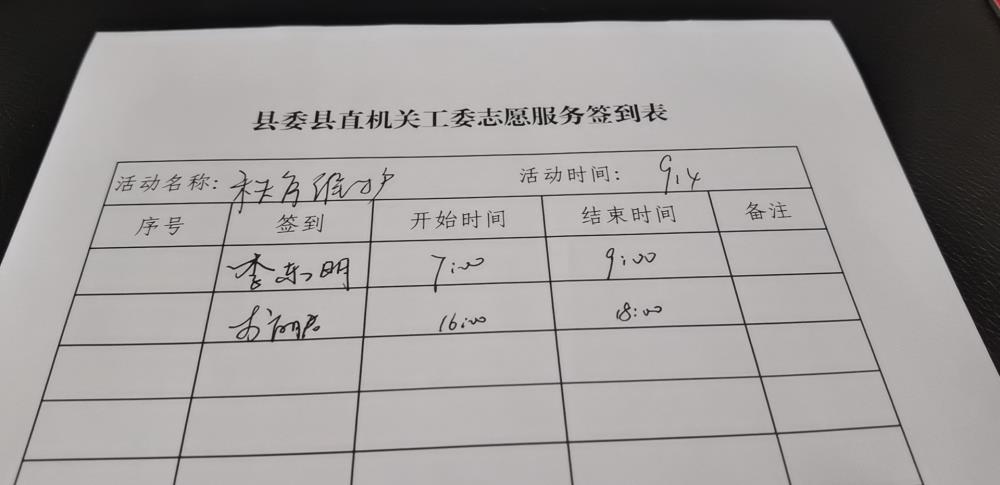 县委县直机关工委志愿服务签到表
活动名称: 秩序维护 活动时间: 9.4
序号 签到 开始时间 结束时间 备注
李东明 7:00 9:00
16:00 18:00